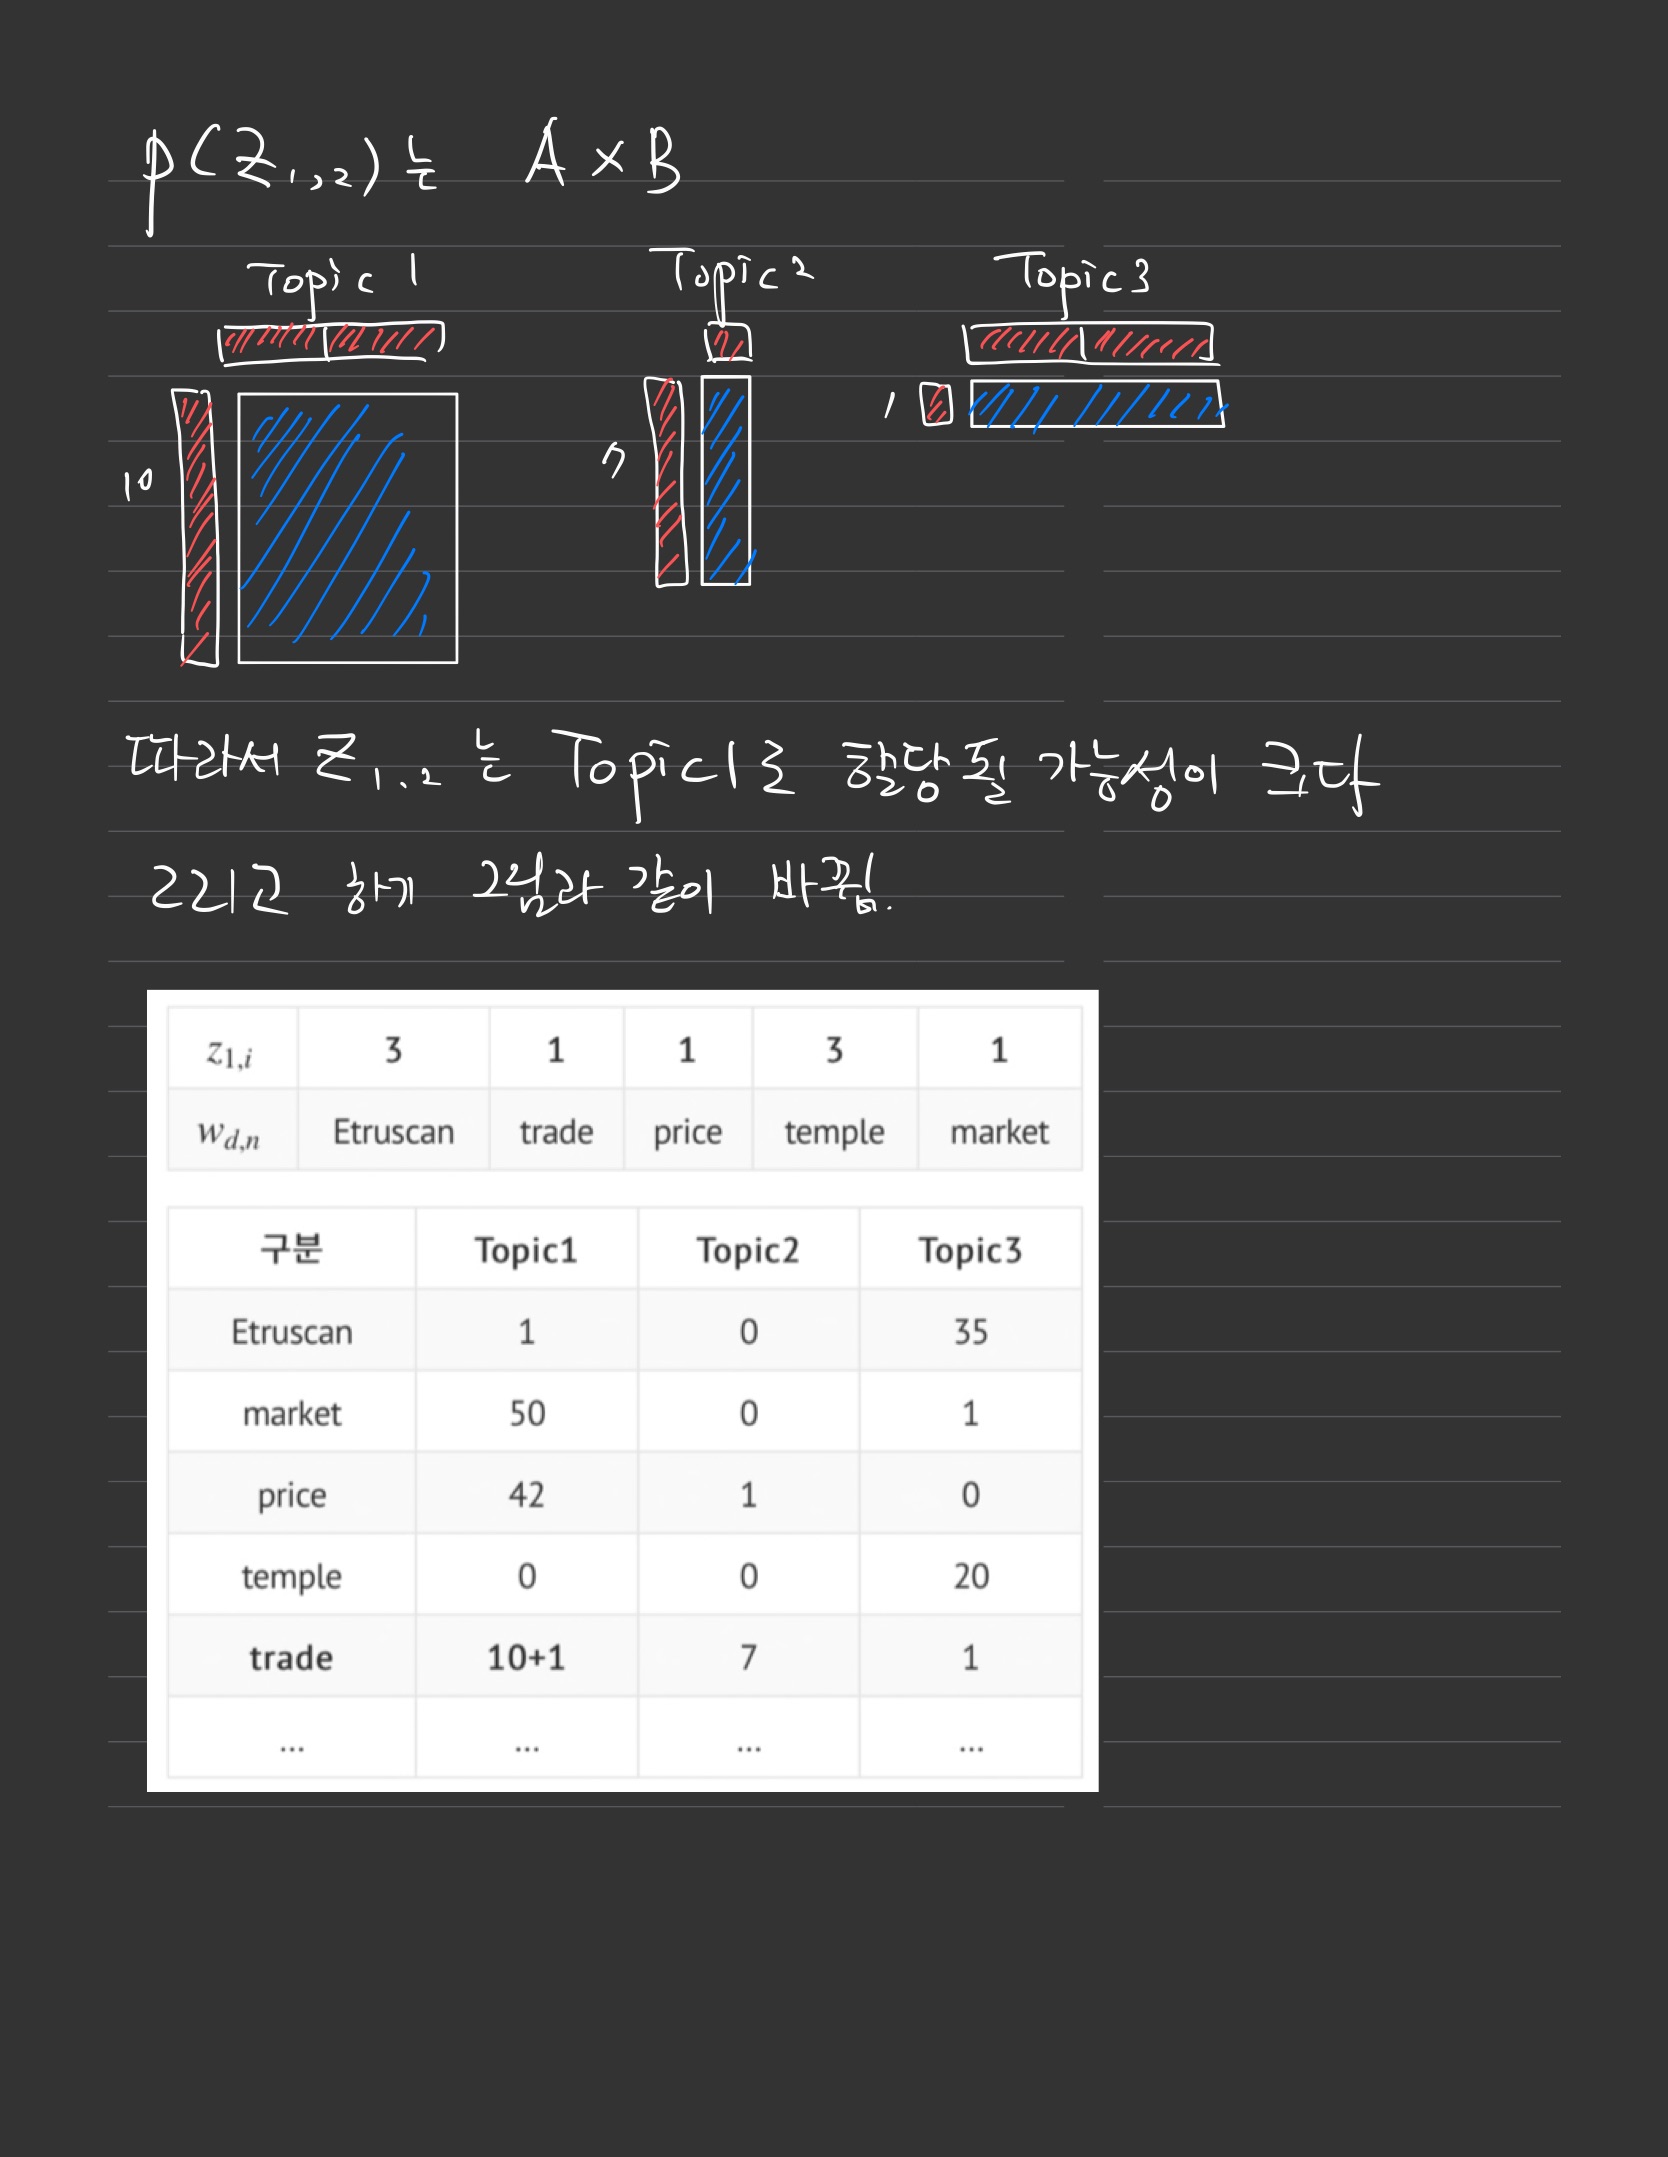 p(Z1,2)는 A×B
Topic 1 Topic 2 Topic 3
10 7 1
따라서 Z1,2 는 Topic1로 할당될 가능성이 크다
그리고 하기 그림과 같이 바뀜.
z1,i 3 1 1 3 1
wd,n Etruscan trade price temple market
구분 Topic1 Topic2 Topic3
Etruscan 1 0 35
market 50 0 1
price 42 1 0
temple 0 0 20
trade 10+1 7 1
... ... ... ...